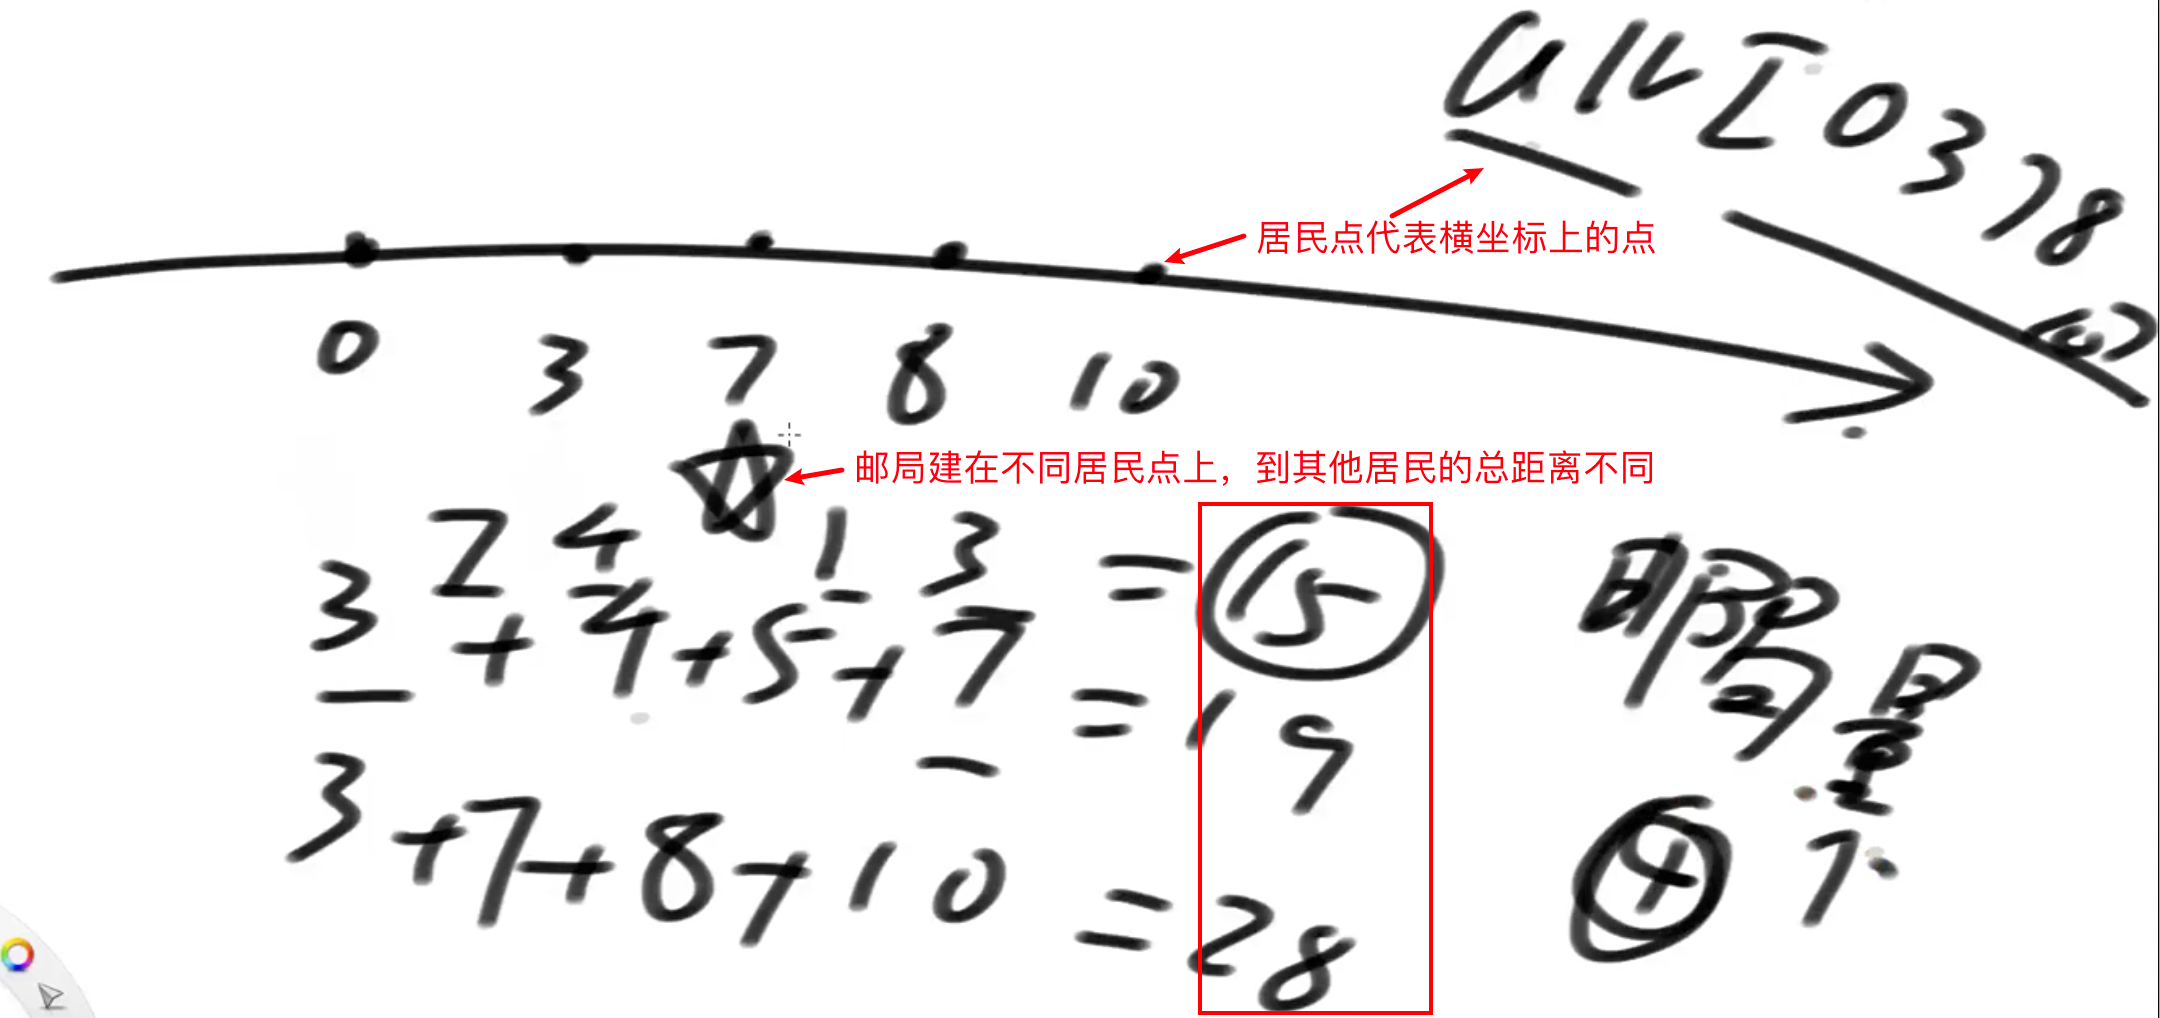 arr [ 0 3 7 8 10 ]
居民点代表横坐标上的点
0 3 7 8 10
邮局建在不同居民点上，到其他居民的总距离不同
7 4 1 3 = 15
3 + 4 + 5 + 7 = 19
3 + 7 + 8 + 10 = 28
邮局量
4 个